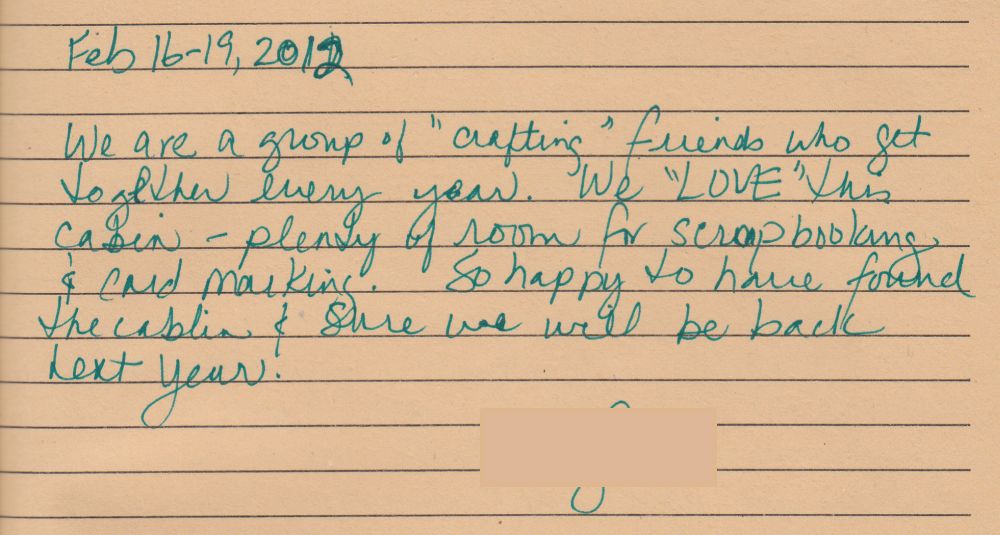 Feb 16-19, 2012
We are a group of "crafting" friends who get
together every year. We "LOVE" this
cabin - plenty of room for scrapbooking
& card making. So happy to have found
the cabin & sure we will be back
next year!